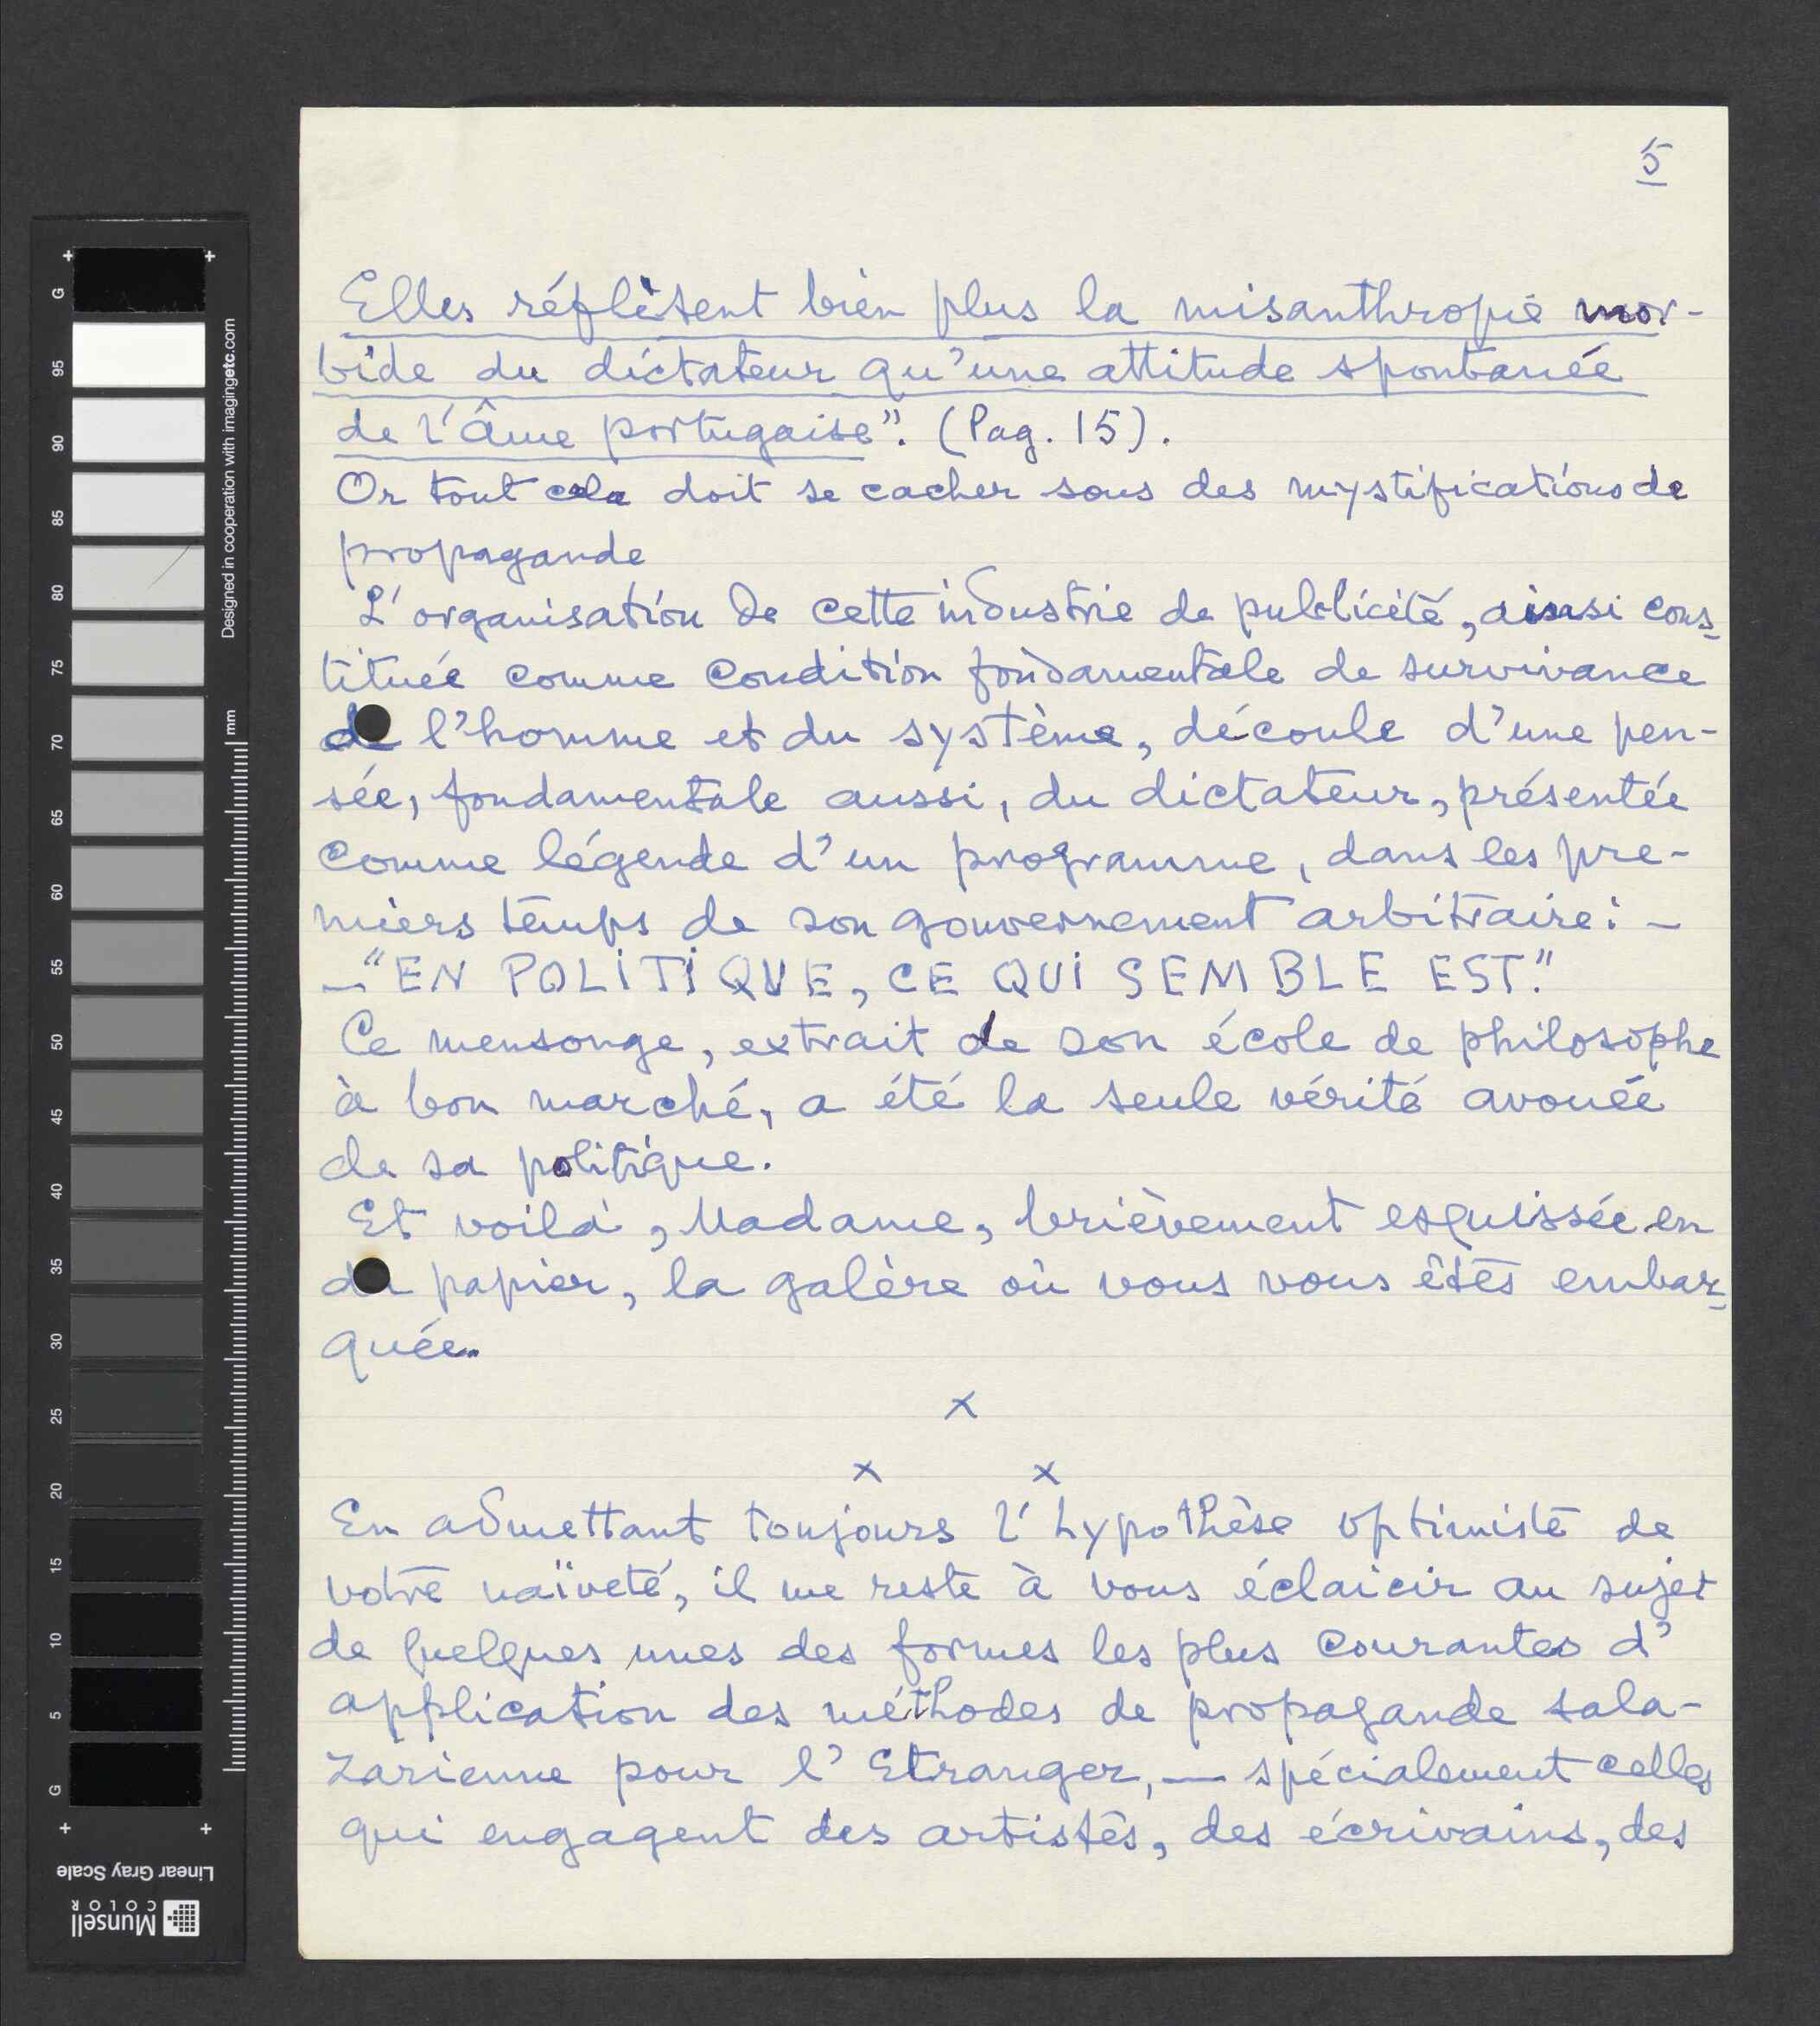 5
Elles réflètent bien plus la misanthropie mor-
bide du dictateur qu'une attitude spontanée
de l'âme portugaise". (Pag. 15).
Or tout cela doit se cacher sous des mystifications de
propagande
L'organisation de cette industrie de publicité, ainsi cons-
tituée comme condition fondamentale de survivance
de l'homme et du système, découle d'une pen-
sée, fondamentale aussi, du dictateur, présentée
comme légende d'un programme, dans les pre-
miers temps de son gouvernement arbitraire: -
- "EN POLITIQUE, CE QUI SEMBLE EST."
Ce mensonge, extrait de son école de philosophe
à bon marché, a été la seule vérité avouée
de sa politique.
Et voilà, Madame, brièvement esquissée en
du papier, la galère où vous vous êtes embar-
quée.
x
x x
En admettant toujours l'hypothèse optimiste de
votre naïveté, il me reste à vous éclaicir au sujet
de quelques unes des formes les plus courantes d'
application des méthodes de propagande sala-
zarienne pour l'Etranger, — spécialement celles
qui engagent des artistes, des écrivains, des
G
95
90
85
80
75
70
65
60
55
50
45
40
35
30
25
20
15
10
5
G
Designed in cooperation with imagingetc.com
mm
Linear Gray Scale
Munsell
COLOR